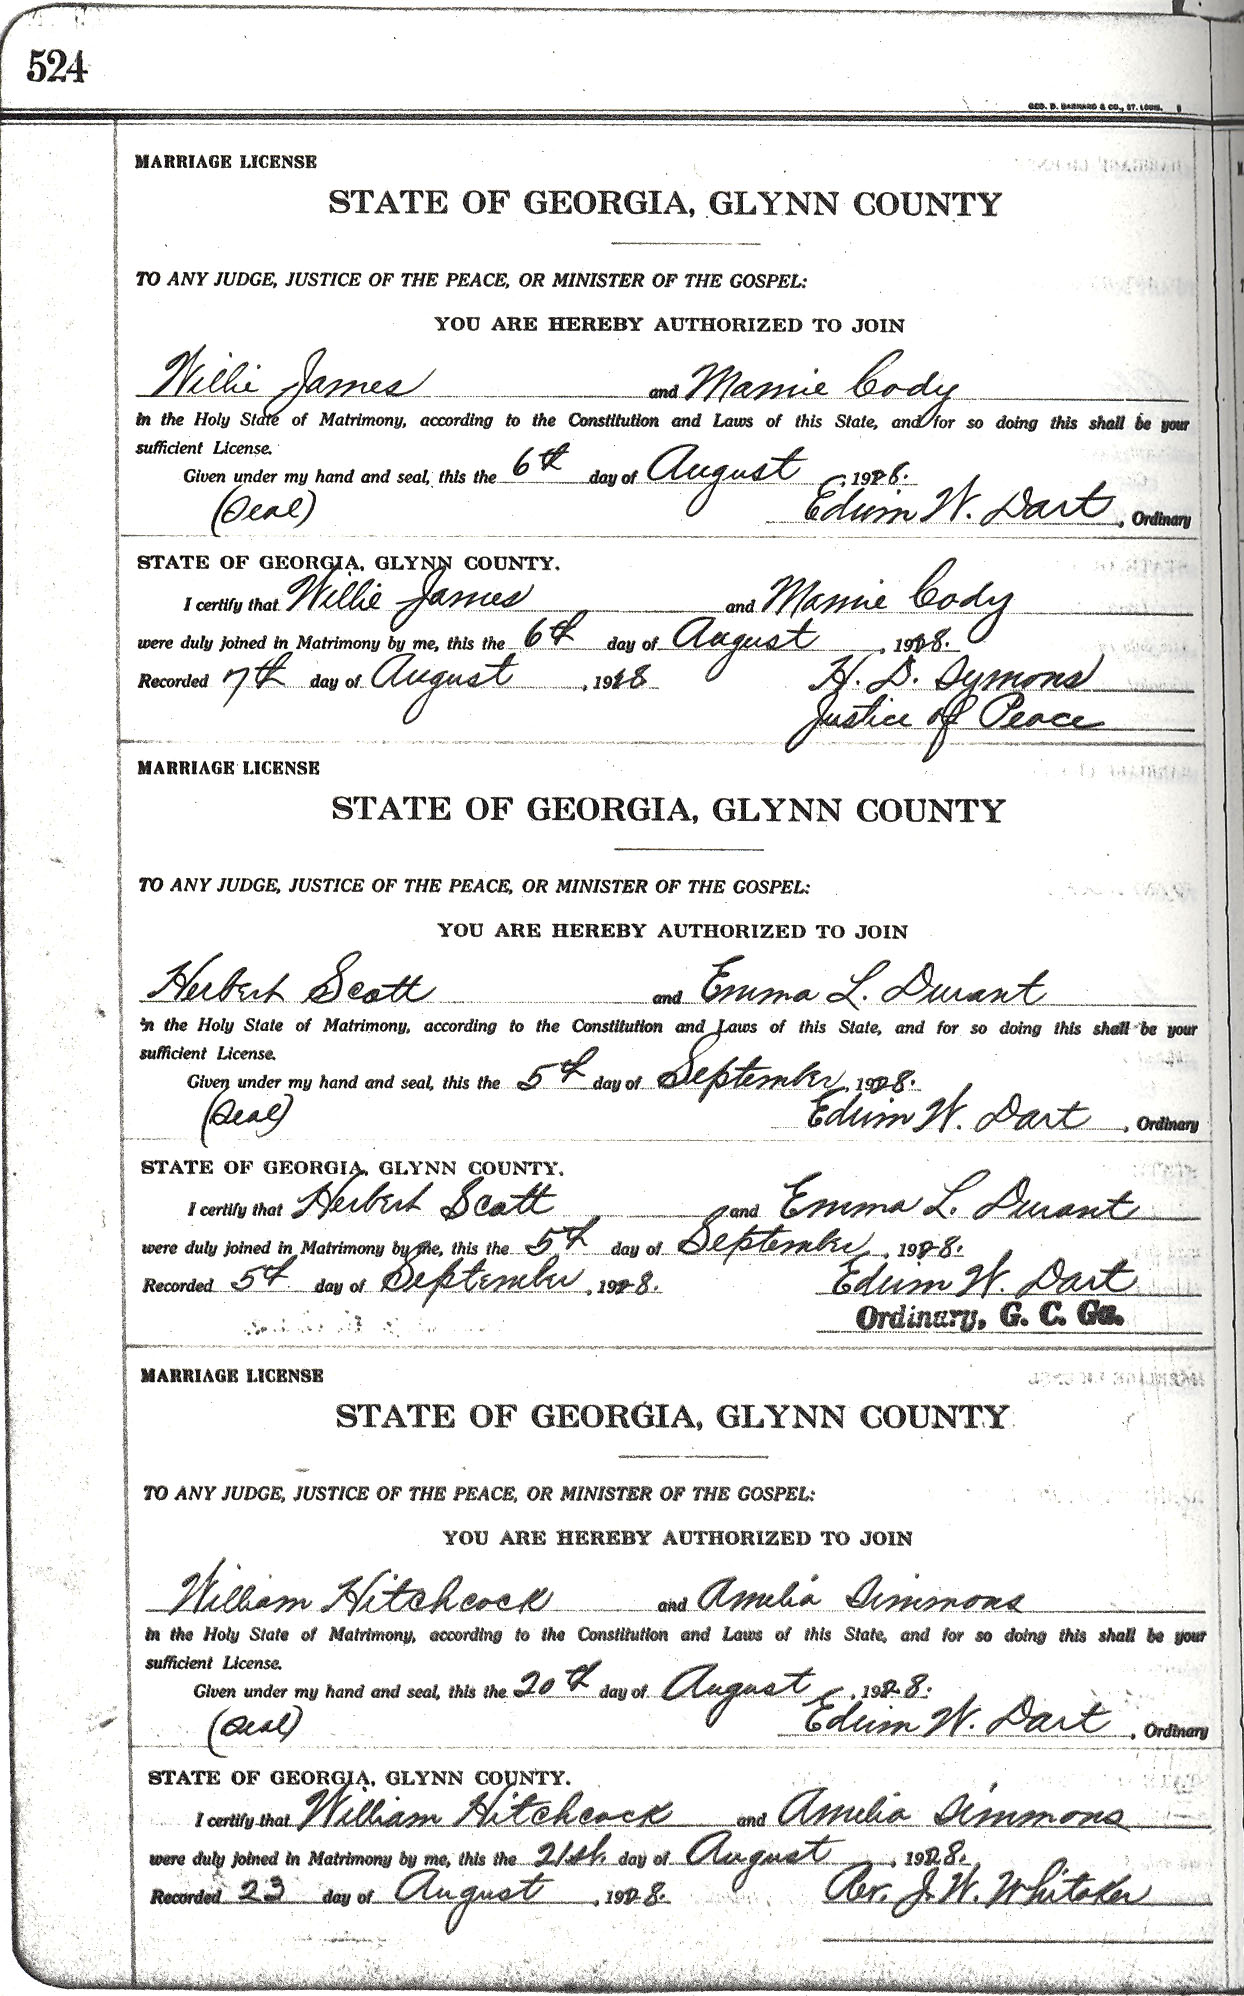 524
GEO. D. BARNARD & CO., ST. LOUIS.
MARRIAGE LICENSE
STATE OF GEORGIA, GLYNN COUNTY
TO ANY JUDGE, JUSTICE OF THE PEACE, OR MINISTER OF THE GOSPEL:
YOU ARE HEREBY AUTHORIZED TO JOIN
Willie James and Mamie Cody
in the Holy State of Matrimony, according to the Constitution and Laws of this State, and for so doing this shall be your
sufficient License.
Given under my hand and seal, this the 6th day of August, 1928.
(Seal) Edwin W. Dart, Ordinary
STATE OF GEORGIA, GLYNN COUNTY.
I certify that Willie James and Mamie Cody
were duly joined in Matrimony by me, this the 6th day of August, 1928.
Recorded 7th day of August, 1928 H. D. Symons
Justice of Peace
MARRIAGE LICENSE
STATE OF GEORGIA, GLYNN COUNTY
TO ANY JUDGE, JUSTICE OF THE PEACE, OR MINISTER OF THE GOSPEL:
YOU ARE HEREBY AUTHORIZED TO JOIN
Herbert Scott and Emma L. Durant
in the Holy State of Matrimony, according to the Constitution and Laws of this State, and for so doing this shall be your
sufficient License.
Given under my hand and seal, this the 5th day of September, 1928.
(Seal) Edwin W. Dart, Ordinary
STATE OF GEORGIA, GLYNN COUNTY.
I certify that Herbert Scott and Emma L. Durant
were duly joined in Matrimony by me, this the 5th day of September, 1928.
Recorded 5th day of September, 1928. Edwin W. Dart
Ordinary, G. C. Ga.
MARRIAGE LICENSE
STATE OF GEORGIA, GLYNN COUNTY
TO ANY JUDGE, JUSTICE OF THE PEACE, OR MINISTER OF THE GOSPEL:
YOU ARE HEREBY AUTHORIZED TO JOIN
William Hitchcock and Amelia Simmons
in the Holy State of Matrimony, according to the Constitution and Laws of this State, and for so doing this shall be your
sufficient License.
Given under my hand and seal, this the 20th day of August, 1928.
(Seal) Edwin W. Dart, Ordinary
STATE OF GEORGIA, GLYNN COUNTY.
I certify that William Hitchcock and Amelia Simmons
were duly joined in Matrimony by me, this the 21st. day of August, 1928.
Recorded 23 day of August, 1928. Rev. J. W. Whitaker